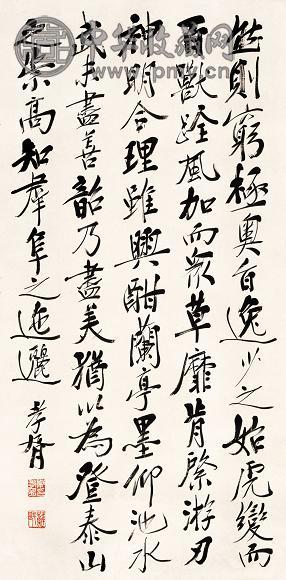 然則窮極奧旨逸少之始虎變而
百獸跧風加而眾草靡肯綮游刃
神明合理雖興酣蘭亭墨仰池水
武未盡善韶乃盡美猶以為登泰山
之崇高知羣阜之迤邐 孝胥